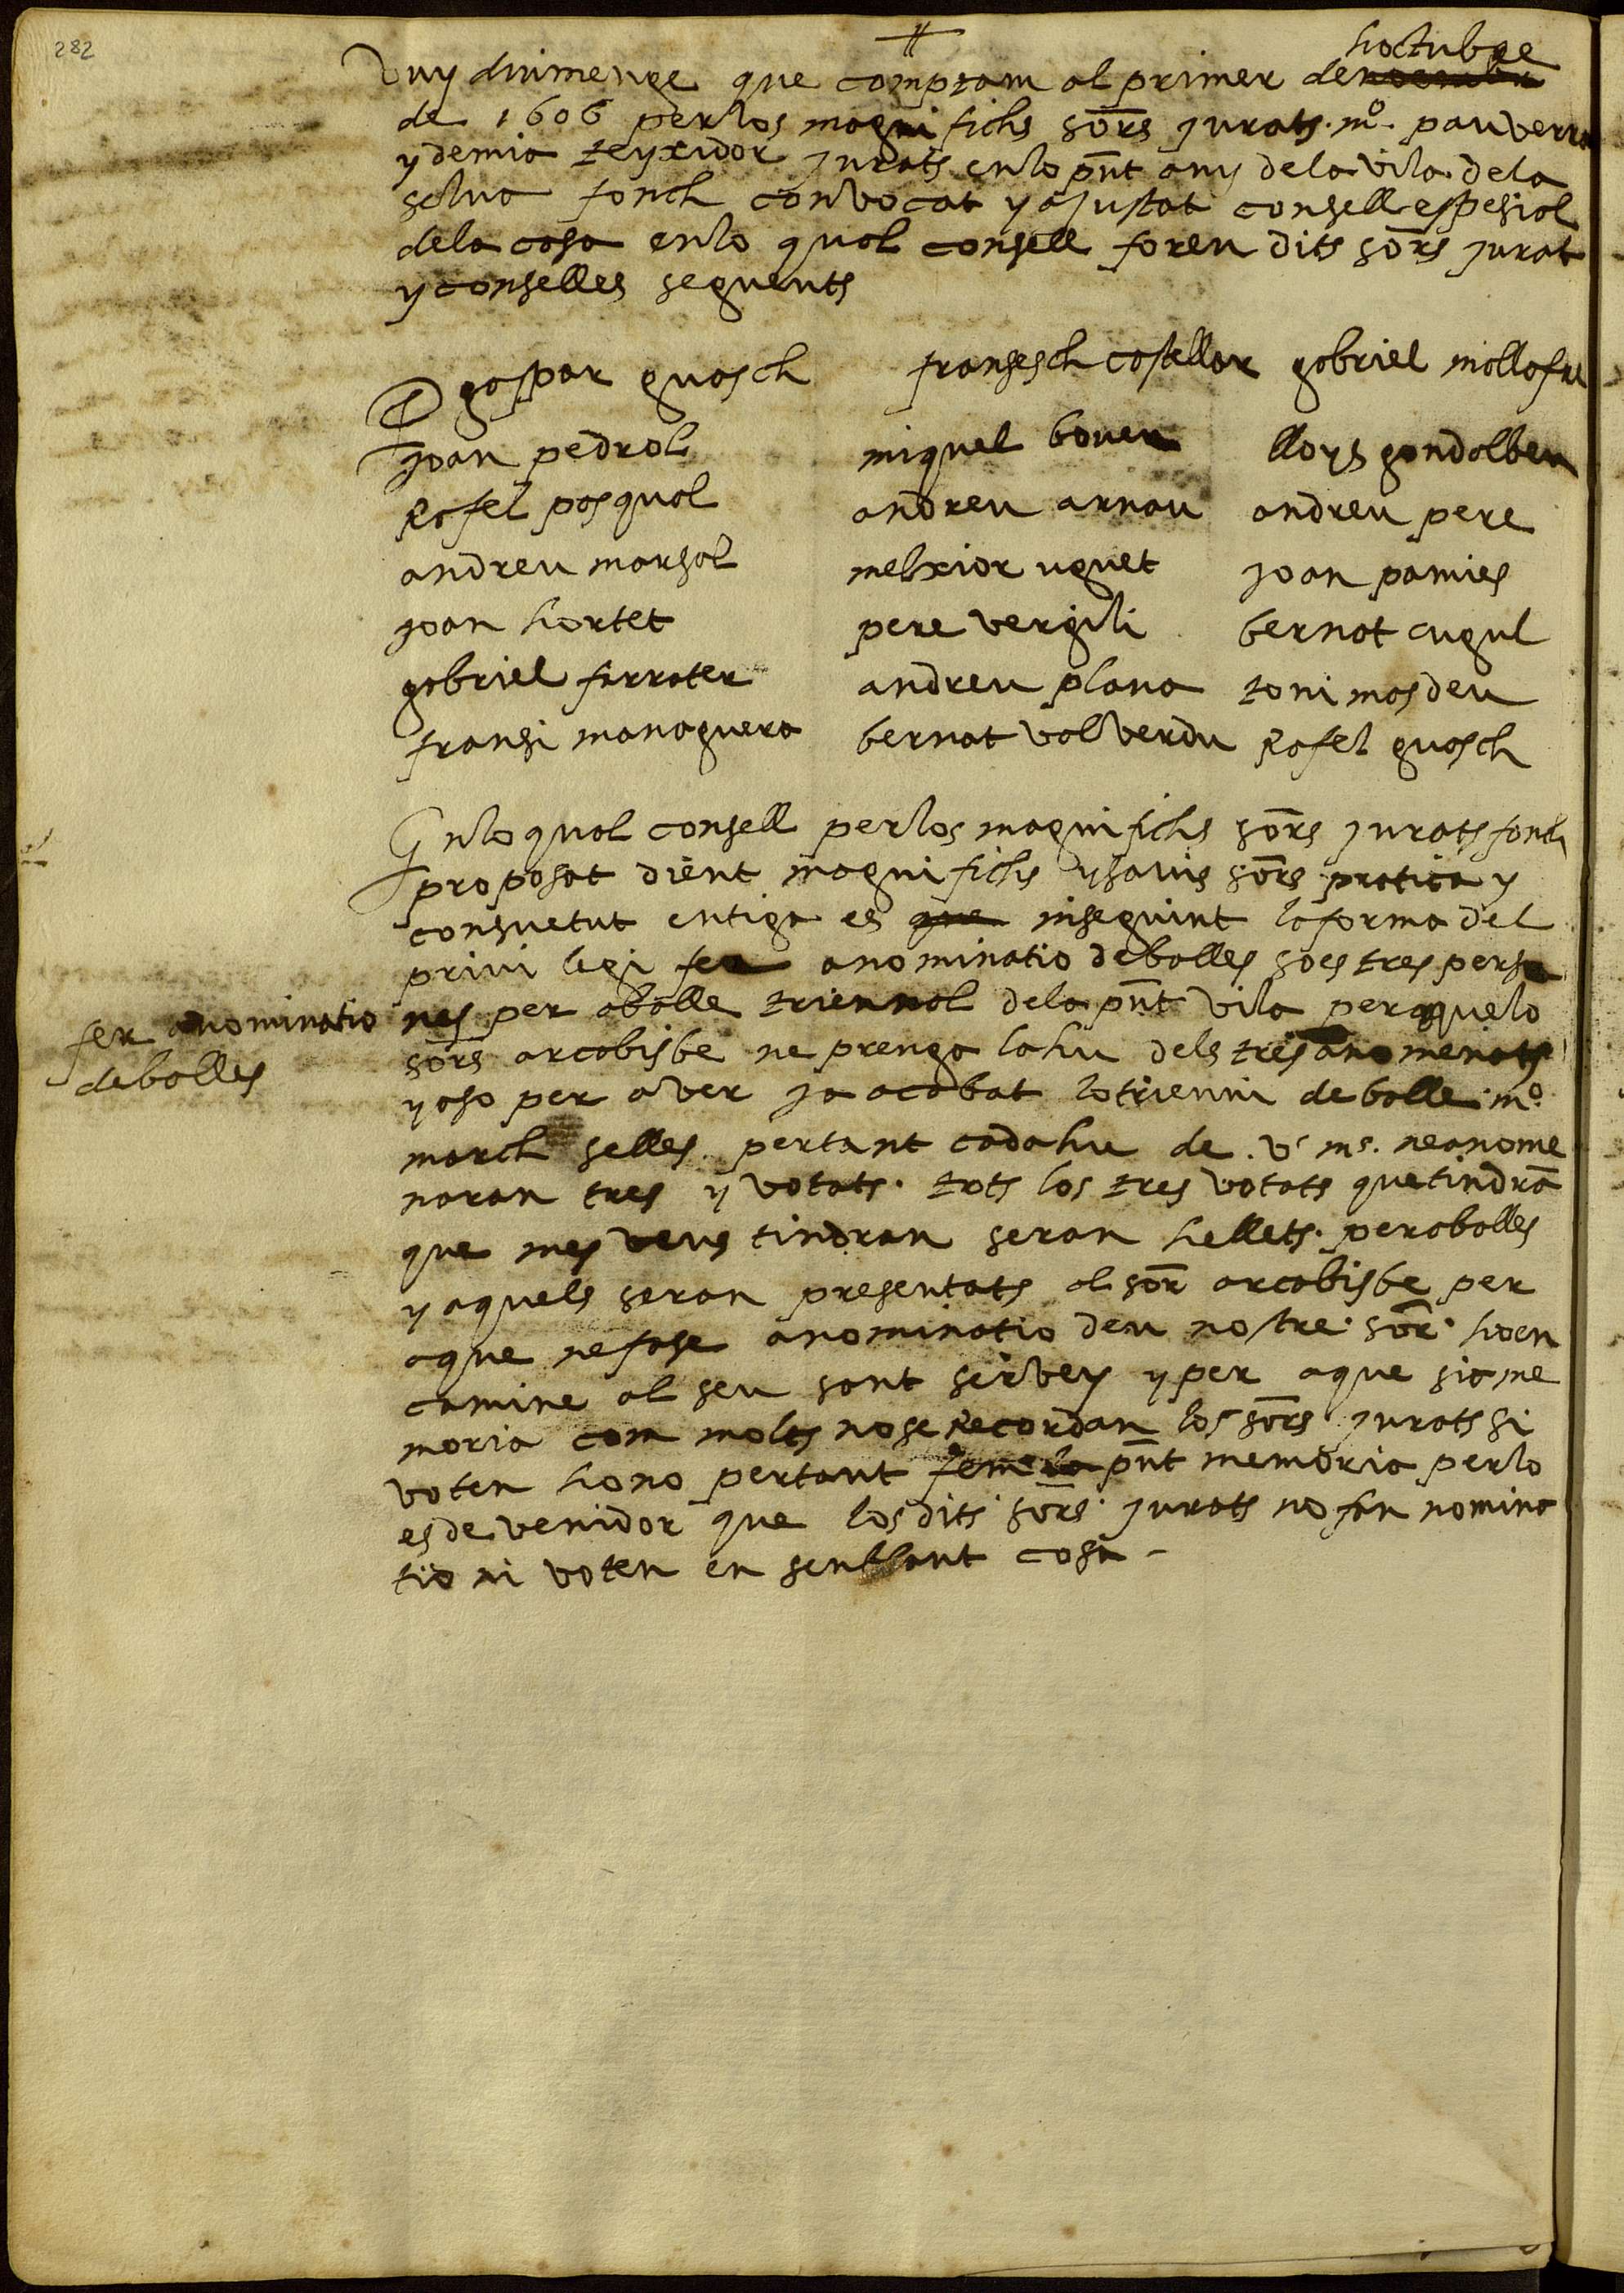 282
hoctubre
Vuy diumenge que comptam al primer de noembre
de 1606 per los magnifichs sors jurats. mo. pau verra
y demia teyxidor jurats en lo pnt any de la vila. de la
selva fonch convocat y ajustat consell espesial
de la casa en lo qual consell foren dits sors jurat
y conselles seguents
gaspar guasch fransesch castellar gabriel mollafre
joan pedrol miquel bover lloys gondolbeu
Rafel pasqual andreu arnau andreu pere
andreu marsal melxior uguet joan pamies
joan hortet pere vergili bernat cugul
gabriel farrater andreu plana toni masdeu
fransi managuera bernat valverdu Rafel guasch
En lo qual consell per los magnifichs sors jurats fonch
proposat dient magnifichs y savis sors pratica y
consuetut entiga es que inseguint la forma del
privi legi fer anominatio de balles so es tres perso
fer anominatio
de balles
nes per aballe triennal de la pnt vila per que lo
sors arcabisbe ne prenga la hu dels tres anomenats
y aso per aver ja acabat lo trienni de balle. mo.
march selles. pertant cada hu de. vs ms. ne anome
naran tres y votats. tots los tres votats que tindrā
que mes veus tindran seran hellets. per aballes
y aquels seran presentats al sor arcabisbe per
aque ne fase anominatio deu nostre. sor. ho en
camine al seu sant servey y per aque sia me
moria com molts no se Recordan los sors. jurats si
voten ho no pertant fem la pnt memoria per lo
esdevenidor que los dits sors. jurats no fan nomina
tio ni voten en senblant cosa -